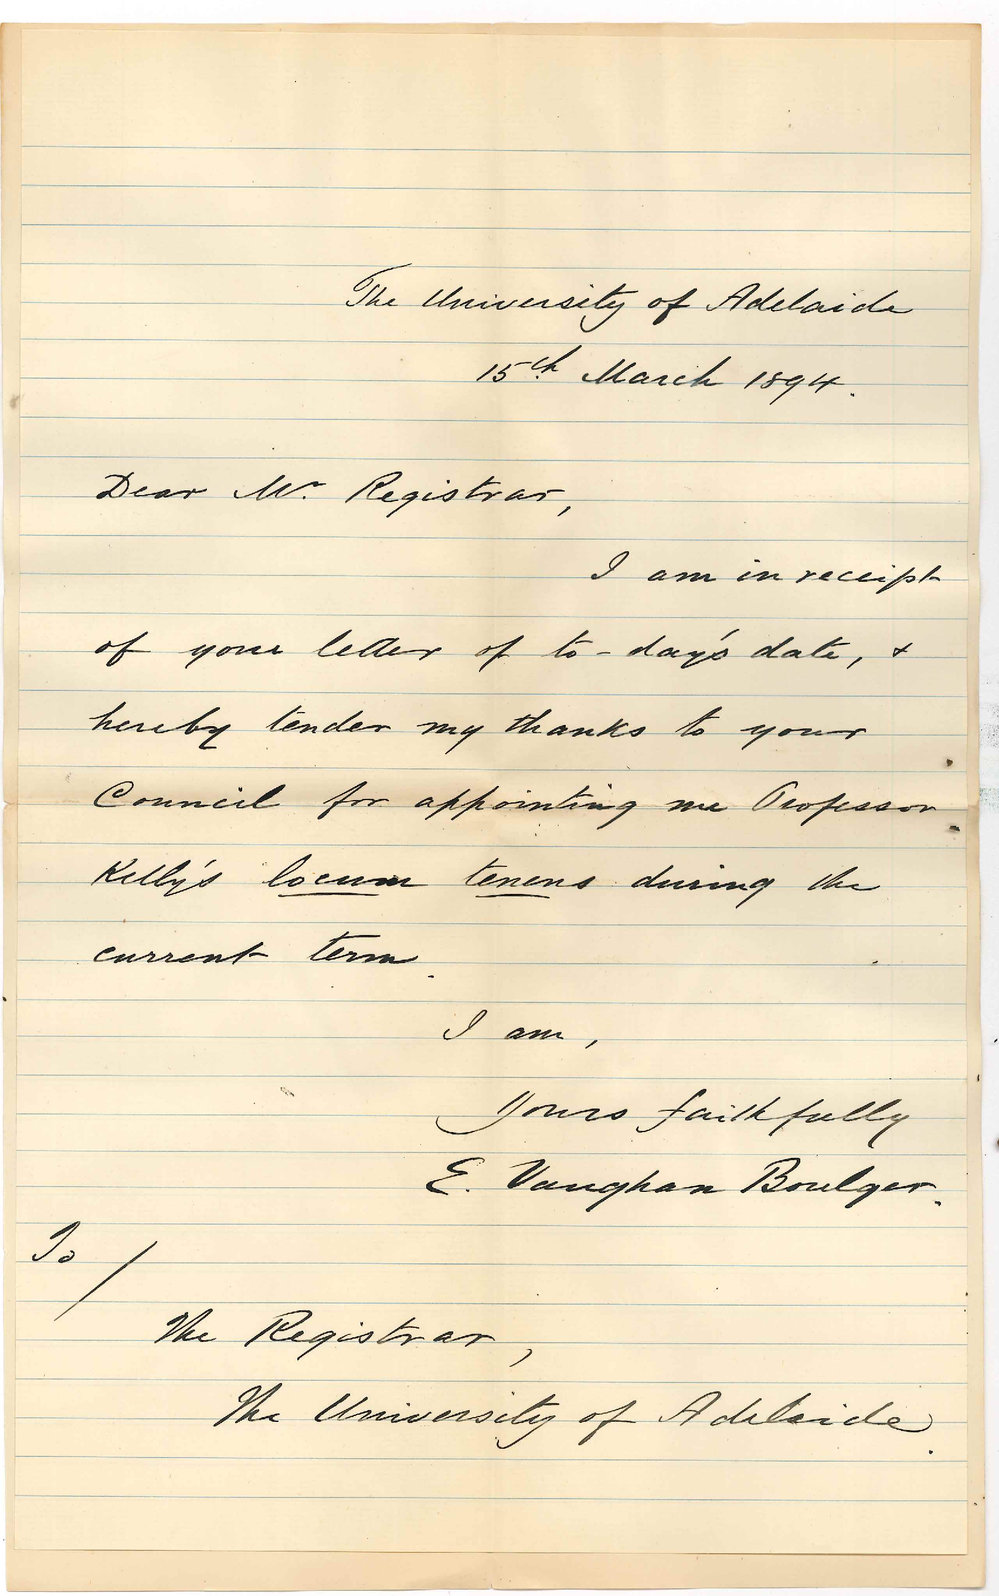 The University of Adelaide
15th March 1894.
Dear Mr. Registrar,
I am in receipt
of your letter of to-day's date, &
hereby tender my thanks to your
Council for appointing me Professor
Kelly's locum tenens during the
current term.
I am,
Yours faithfully
E. Vaughan Boulger.
To /
The Registrar,
The University of Adelaide.